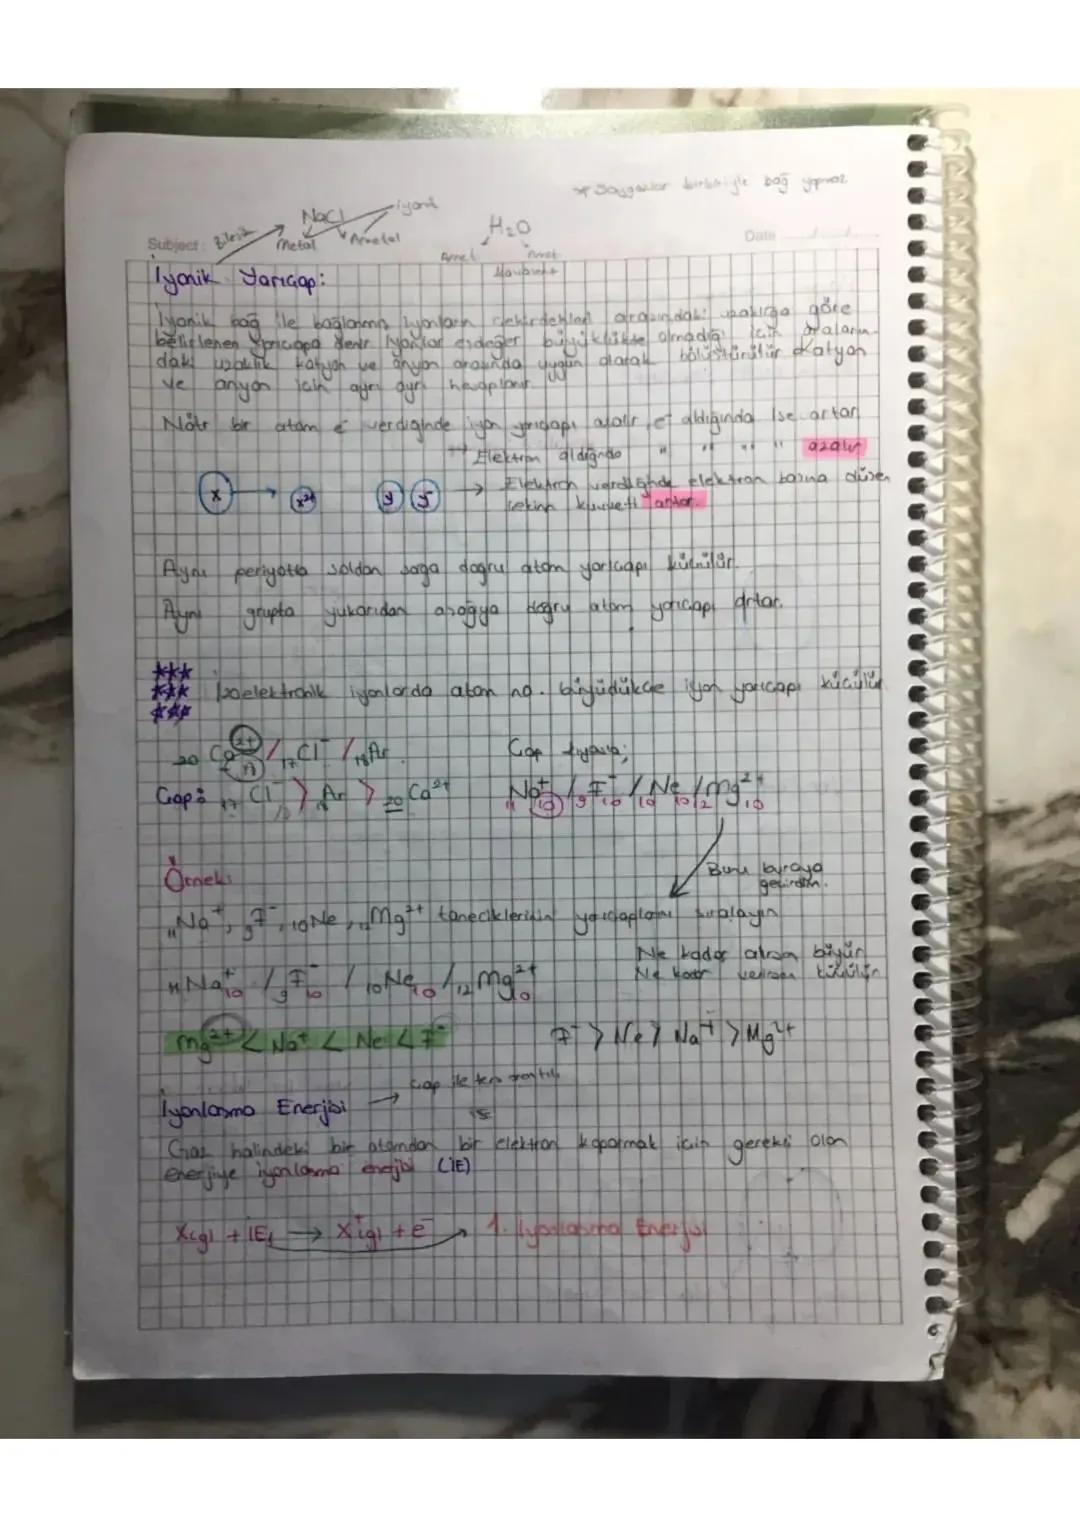 * Soygazlar birbiriyle bağ yapmaz
NaCl
iyonik
H₂O
Subject:
Bileşik
metal
Ametal
Amet
Amet
Date
İyonik Yarıçap:
İyonik bağ ile bağlanmış iyonların çekirdekleri arasındaki uzaklığa göre
belirlenen yarıçapa denir. İyonlar eşdeğer büyüklükte olmadığı için araların-
daki uzaklık katyon ve anyon arasında uygun olarak bölüştürülür katyon
ve anyon için ayrı ayrı hesaplanır.
Nötr bir atom e⁻ verdiğinde iyon yarıçapı azalır, e⁻ aldığında ise artar.
→ Elektron aldığında " " " " azalır
X → X²⁺ y y⁻ → Elektron verdiğinde elektron başına düşen
çekim kuvveti artar.
Aynı periyotta soldan sağa doğru atom yarıçapı küçülür.
Aynı grupta yukarıdan aşağıya doğru atom yarıçapı artar.
***
*** İzoelektronik iyonlarda atom no. büyüdükçe iyon yarıçapı küçülür
***
₂₀Ca²⁺ / ₁₇Cl⁻ / ₁₈Ar
Çap: ₁₇Cl⁻ > ₁₈Ar > ₂₀Ca²⁺
₁₁Na⁺₁₀ / ₉F⁻₁₀ / ₁₀Ne₁₀ / ₁₂Mg²⁺₁₀
Bunu buraya
geçirdim.
Örnek:
₁₁Na⁺, ₉F⁻, ₁₀Ne, ₁₂Mg²⁺ taneciklerinin yarıçaplarını sıralayın
Ne kadar alırsan büyür
Ne kadar verirsen küçülür
₁₁Na⁺₁₀ / ₉F⁻₁₀ / ₁₀Ne₁₀ / ₁₂Mg²⁺₁₀
Mg²⁺ < Na⁺ < Ne < F⁻
F⁻ > Ne > Na⁺ > Mg²⁺
Çap ile ters orantılı
İyonlaşma Enerjisi →
Gaz halindeki bir atomdan bir elektron koparmak için gerekli olan
enerjiye iyonlaşma enerjisi (İE)
X(g) + İE₁ → X⁺(g) + e⁻ → 1. İyonlaşma Enerjisi